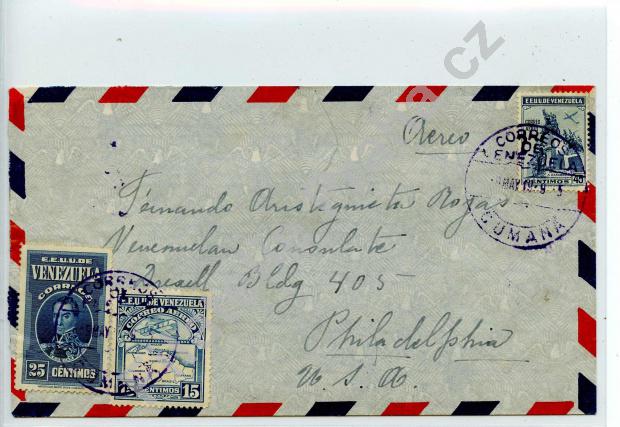 Aereo
E.E.U.U. DE VENEZUELA
CENTIMOS 45
CORREOS
DE
VENEZUELA
MAY 10
CUMANA
Fernando Aristeguieta Rojas
Venezuelan Consulate
Bldg 405
Philadelphia
U.S.A.
E.E.U.U. DE
VENEZUELA
CORREOS
25 CÉNTIMOS
CORREOS
DE
MAY
E.E.U.U. DE VENEZUELA
CORREO AEREO
CENTIMOS 15
cz